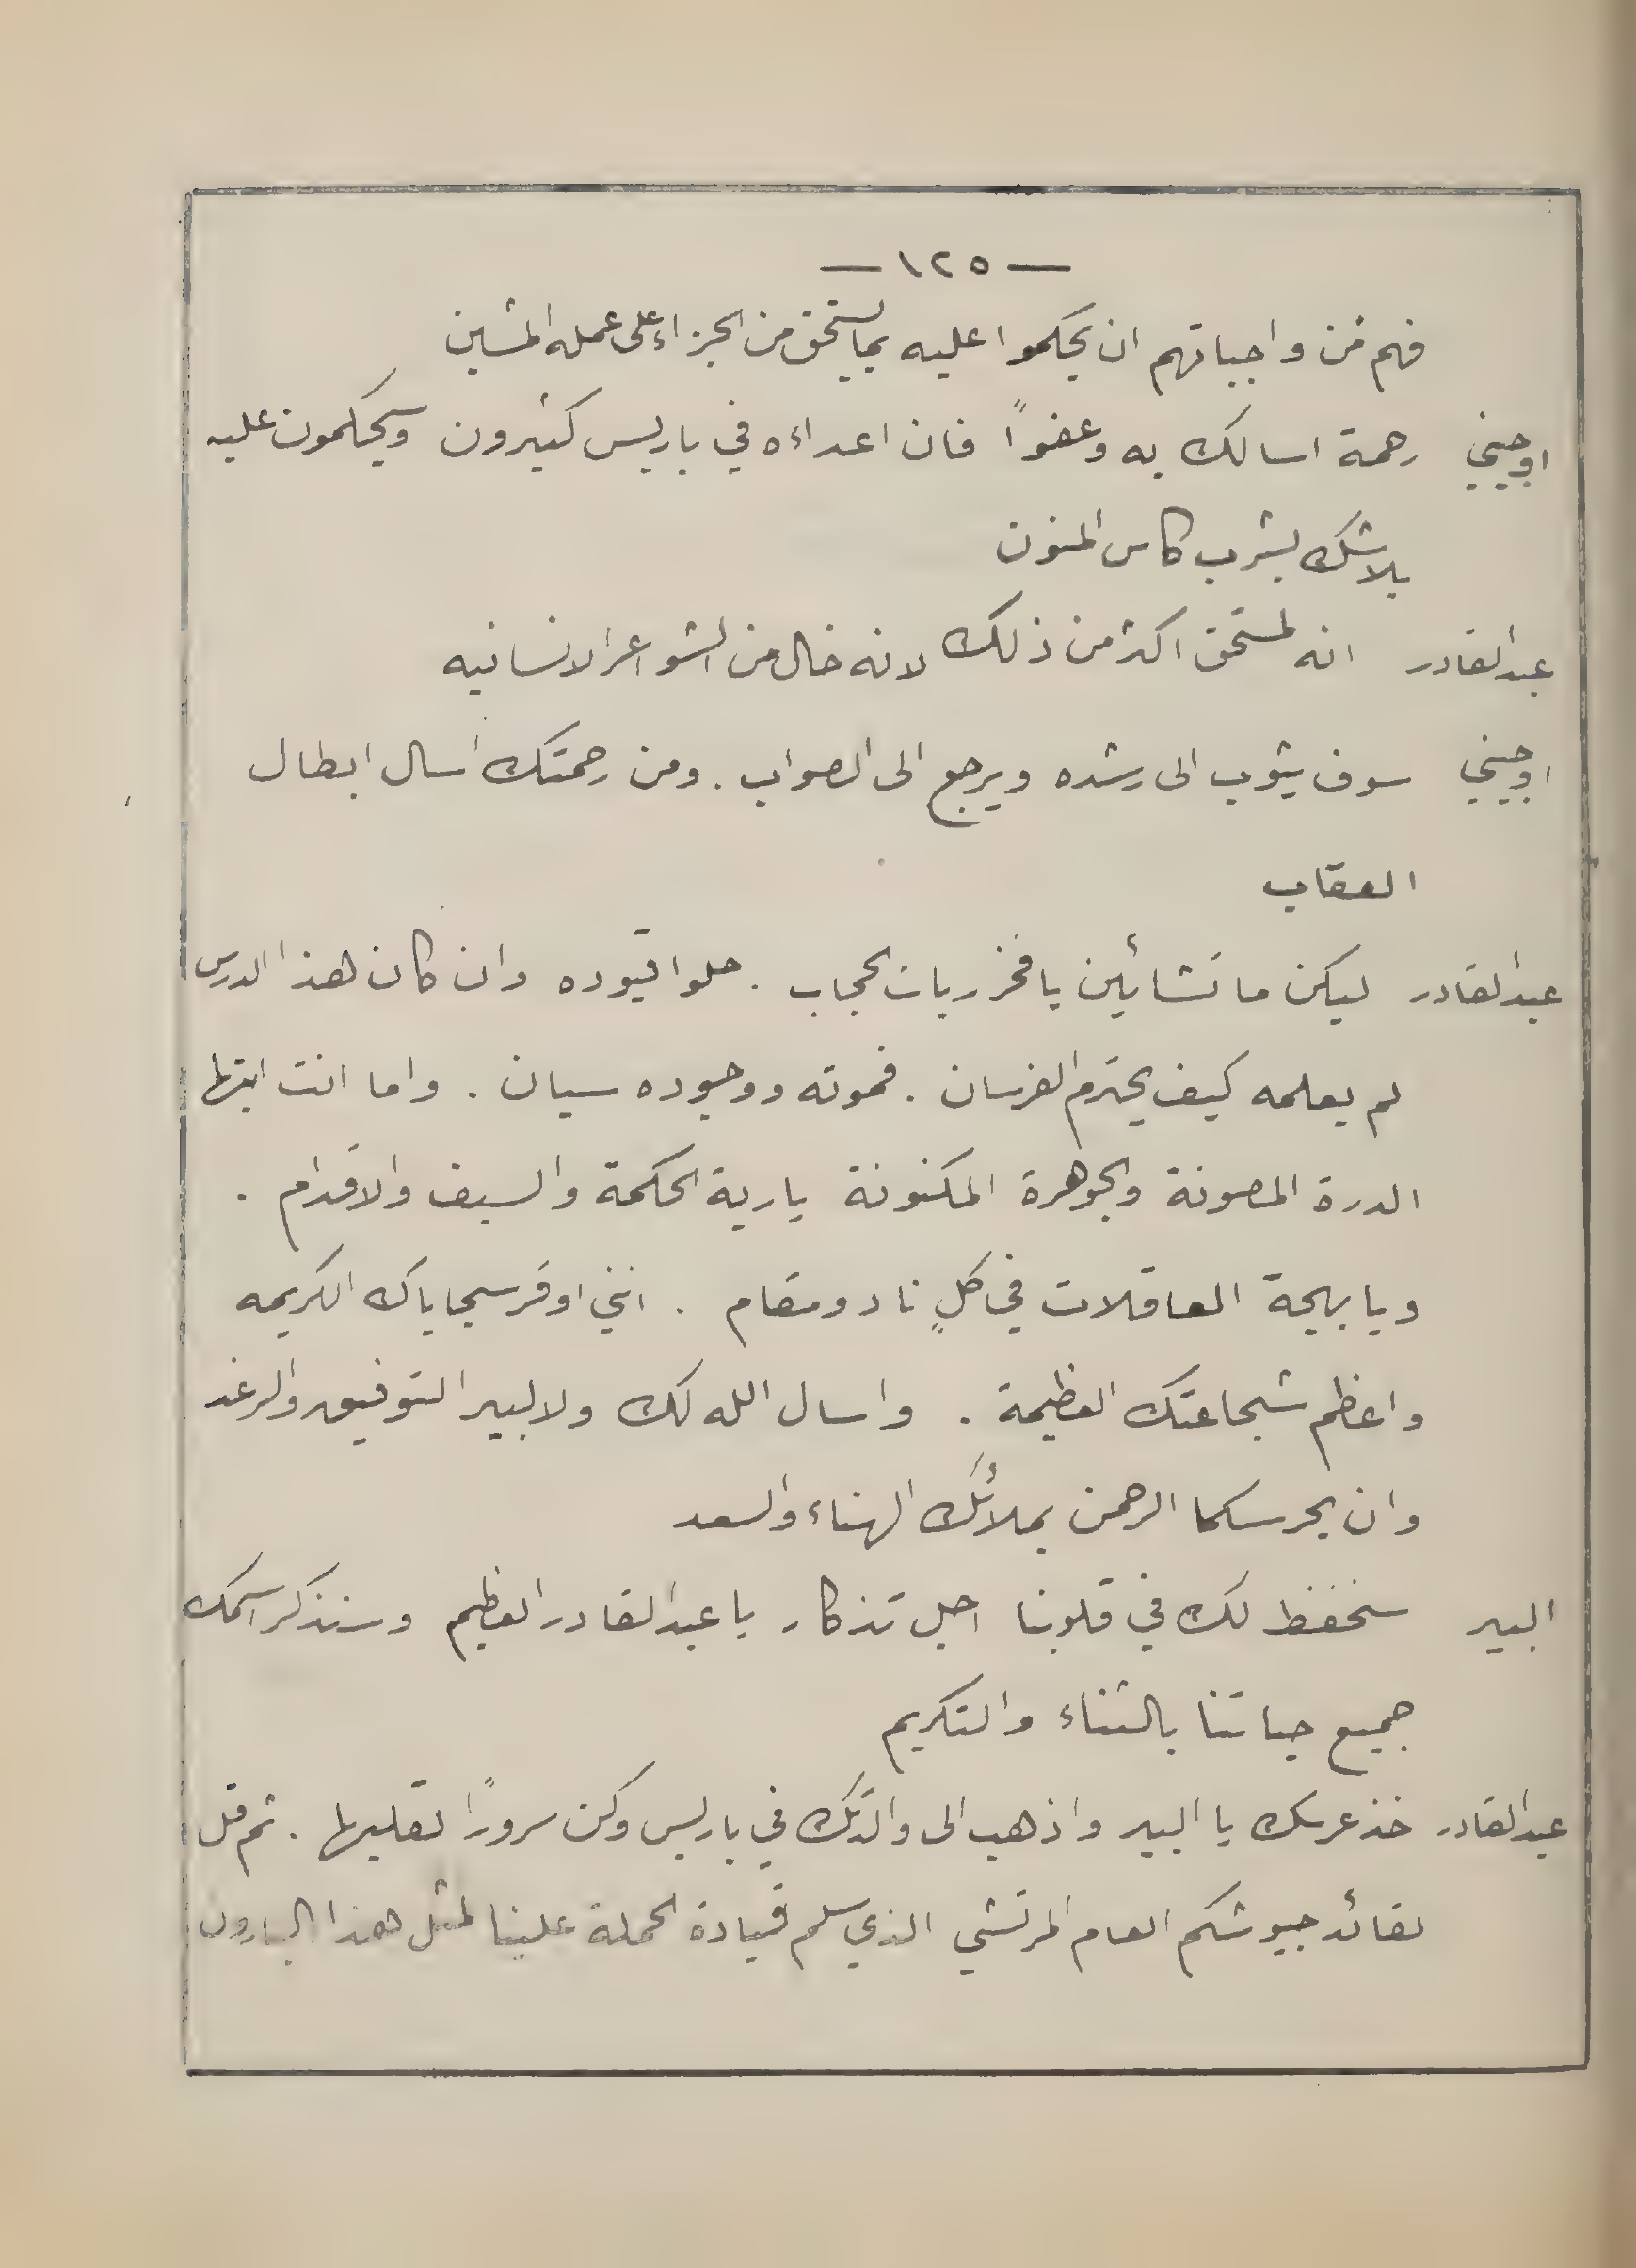 — ١٢٥ —
فهم من واجباتهم ان يحكموا عليه بما يستحق من الجزاء على عمله المشين
اوجيني رحمة اسالك به وعفواً فان اعداءه في باريس كثيرون وسيحكمون عليه
بلا شك بشرب كاس المنون
عبد القادر انه لمستحق اكثر من ذلك لانه خال من الشواعر الانسانيه
اوجيني سوف يثوب الى رشده ويرجع الى الصواب . ومن رحمتك اسال ابطال
العقاب
عبد القادر ليكن ما تشائين يا فخر ربات الحجاب . حلوا قيوده وان كان هذا الدرس
لم يعلمه كيف يحترم الفرسان . فموته ووجوده سيان . واما انت ايتها
الدرة المصونة والجوهرة المكنونة يا ربة الحكمة والسيف والاقدام .
ويا بهجة العاقلات في كلٍ ناد ومقام . انني اوقر سجاياك الكريمه
واعظم شجاعتك العظيمة . واسال الله لك ولالبير التوفيق والرغد
وان يحرسكما الرحمن بملائك الهناء والسعد
البير سنحفظ لك في قلوبنا اجل تذكار يا عبد القادر العظيم وسنذكر اسمك
جميع حياتنا بالثناء والتكريم
عبد القادر خذ عرسك يا البير واذهب الى والدتك في باريس وكن سروراً لقلبها . ثم قل
لقائد جيوشكم العام المرتشي الذي سلم قيادة الحملة علينا لمثل هذا البارون